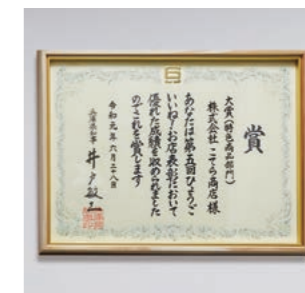 賞
大賞(特色商品部門)
株式会社 こそら商店 様
あなたは第五回ひょうご
いいね!お店表彰において
優れた成績を収められました
のでこれを賞します
令和元年六月二十八日
兵庫県知事 井戸敏三